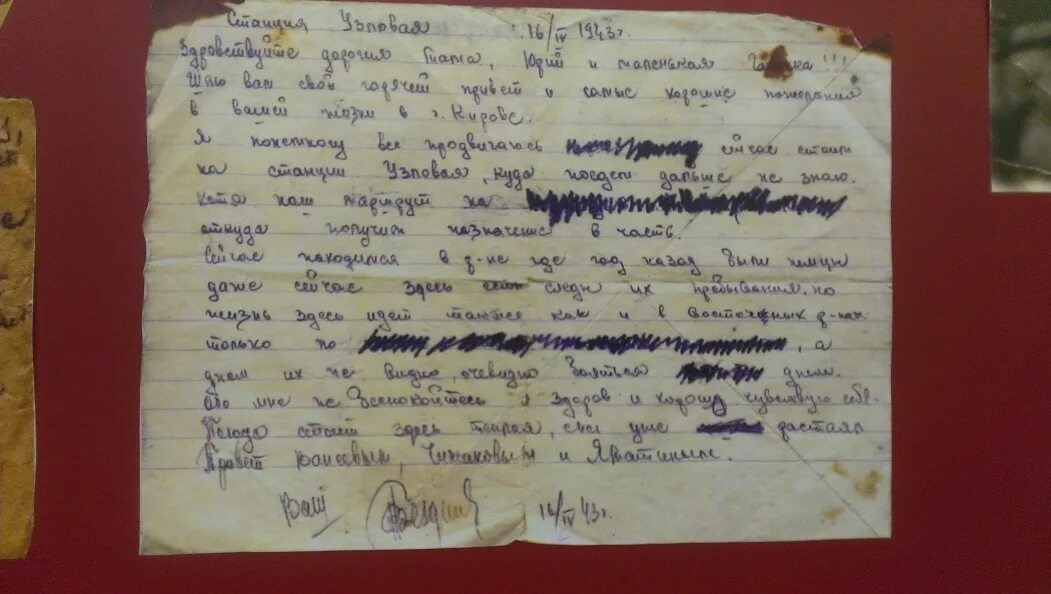 Станция Узловая 16/IV 1943 г.
Здравствуйте дорогия Тата, Юрий и маленькая !!!
Шлю вам свой горячей привет и самые хорошие пожелания
в вашей жизни в г. Кирове.
Я понемногу все продвигаюсь сейчас стоим
на станции Узловая, куда поедем дальше не знаю.
хотя наш маршрут на
откуда получим назначение в часть.
Сейчас находимся в р-не где год назад были немцы
даже сейчас здесь есть следы их пребывания, но
жизнь здесь идет также как и в восточных р-нах
только по , а
днем их не видно, очевидно боятся днем.
Обо мне не беспокойтесь я здоров и хорошо чувствую себя.
Погода стоит здесь теплая, снег уже растаял
Привет , Чижаковым и
Ваш 16/IV 43 г.